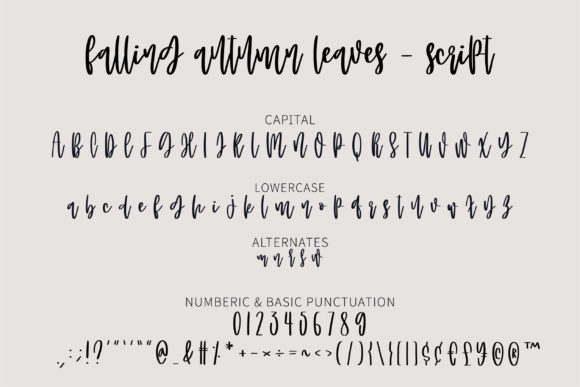 falling autumn leaves - script
CAPITAL
A B C D E F G H I J K L M N O P Q R S T U V W X Y Z
LOWERCASE
a b c d e f g h i j k l m n o p q r s t u v w x y z
ALTERNATES
m n r s w
NUMBERIC & BASIC PUNCTUATION
0 1 2 3 4 5 6 7 8 9
, . : ; ! ? ' " ' ' “ ” @ _ & # % * + - × ÷ = ~ < > ( / ) { \ } [ | ] $ ¢ £ ¥ © ® ™